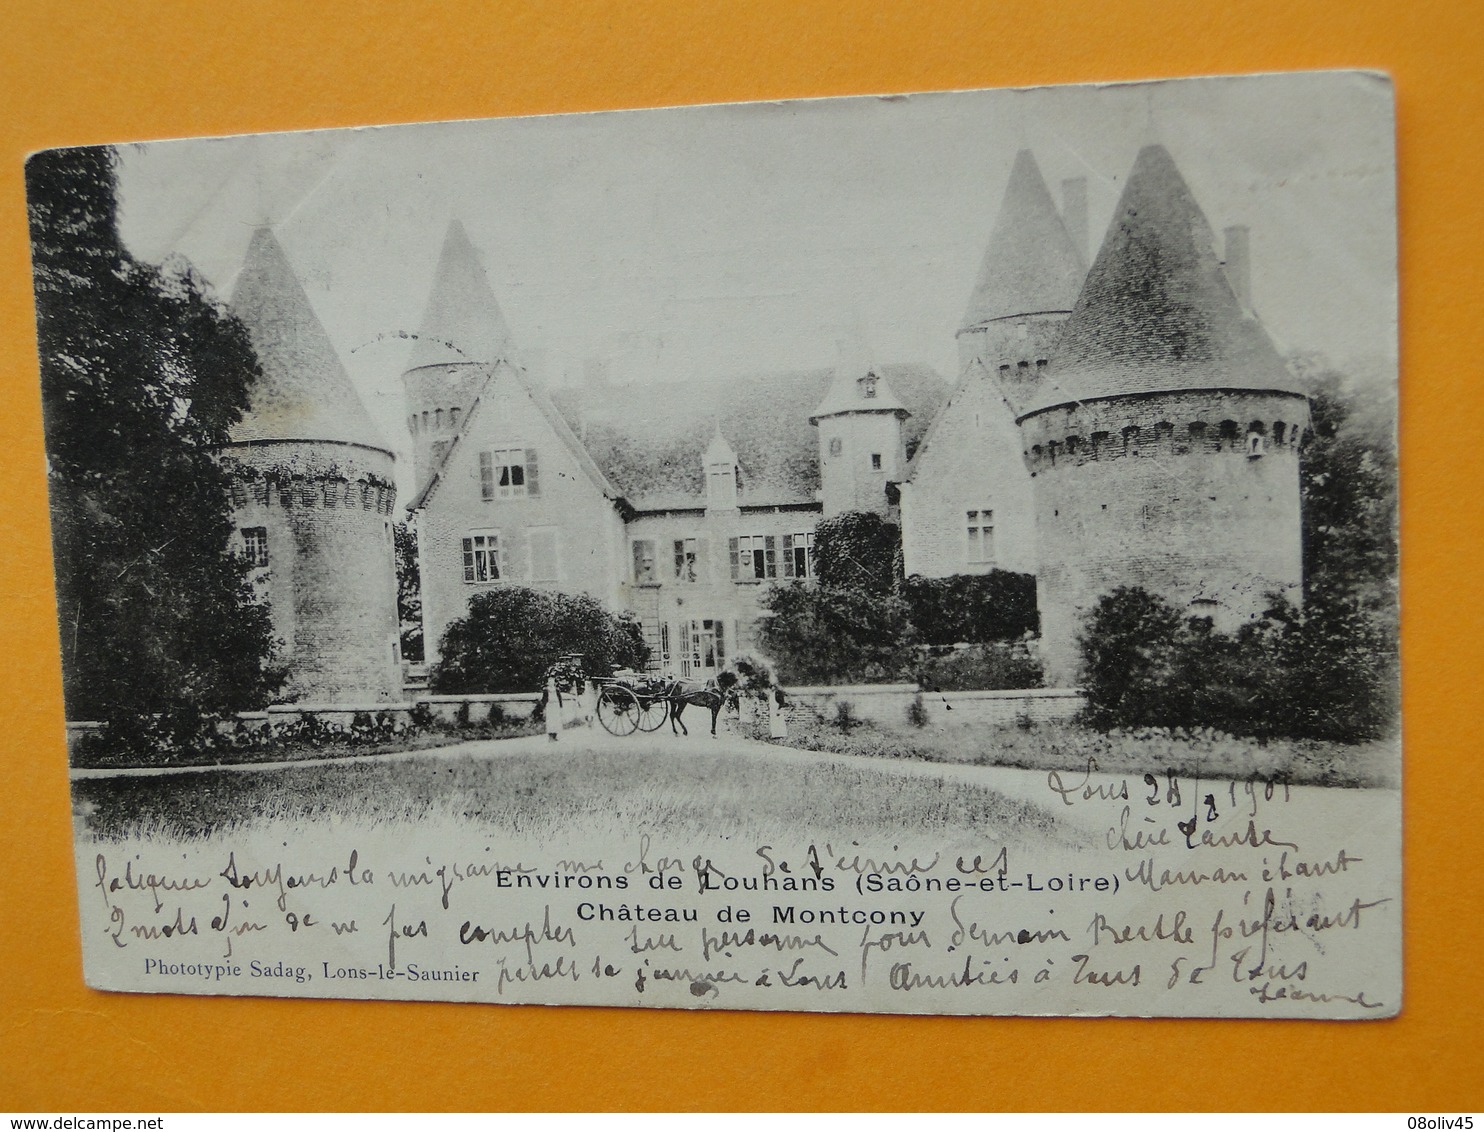 Lons 28/8 1901
chère Tante
Maman étant
fatiguée toujours la migraine me charge de t'écrire ces
Environs de Louhans (Saône-et-Loire)
Château de Montcony
2 mots afin de ne pas compter sur personne pour demain Berthe préférant
Phototypie Sadag, Lons-le-Saunier
sa journée à Lons Amitiés à Tous de Tous
Jeanne
08oliv45